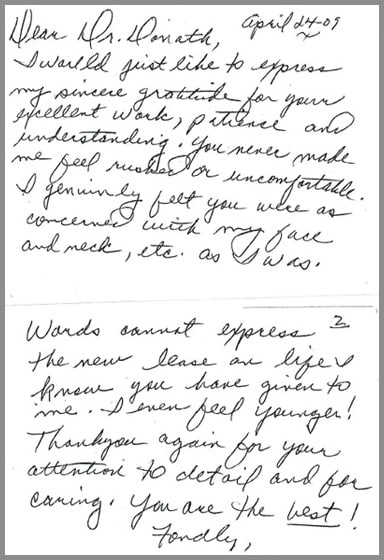 April 24-09
Dear Dr. Donath,
I would just like to express
my sincere gratitude for your
excellent work, patience and
understanding. You never made
me feel rushed or uncomfortable.
I genuinely felt you were as
concerned with my face
and neck, etc. as I was.
2
Words cannot express
the new lease on life I
know you have given to
me. I even feel younger!
Thankyou again for your
attention to detail and for
caring. You are the best!
Fondly,